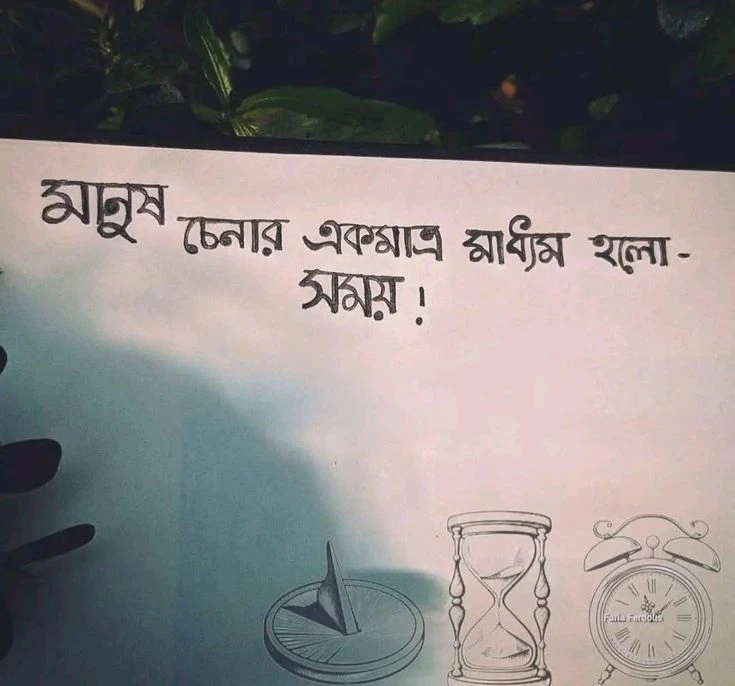 মানুষ চেনার একমাত্র মাধ্যম হলো-
সময়!
Faria Ferdous